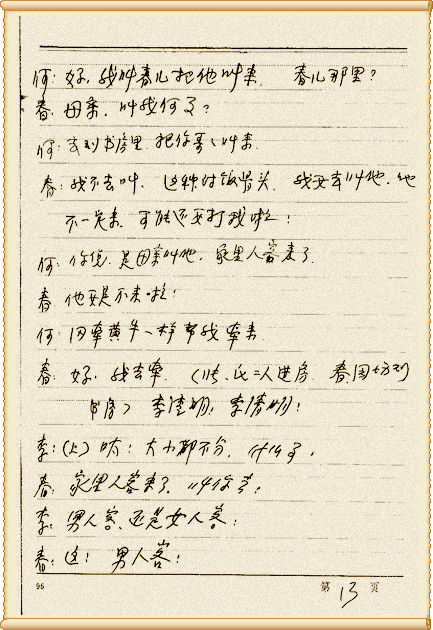 何:好,我叫春儿把他叫来. 春儿那里?
春:母亲,叫我何了?
何:去到书房里.把你哥哥叫来.
春:我不去叫,这种讨饭骨头,我要去叫他,他
不一定来,可能还要打我啦!
何:你说,是母亲叫他,家里人客来了.
春:他要是不来啦!
何:同牵黄牛一样帮我牵来.
春:好,我去牵. (陈、氏二人进房 春
书房) 李清明,李清明!
李:(上)呔!大小都不分.什么事.
春:家里人客来了,叫你去.
李:男人客,还是女人客!
春:这!男人客!
96 第 13 页